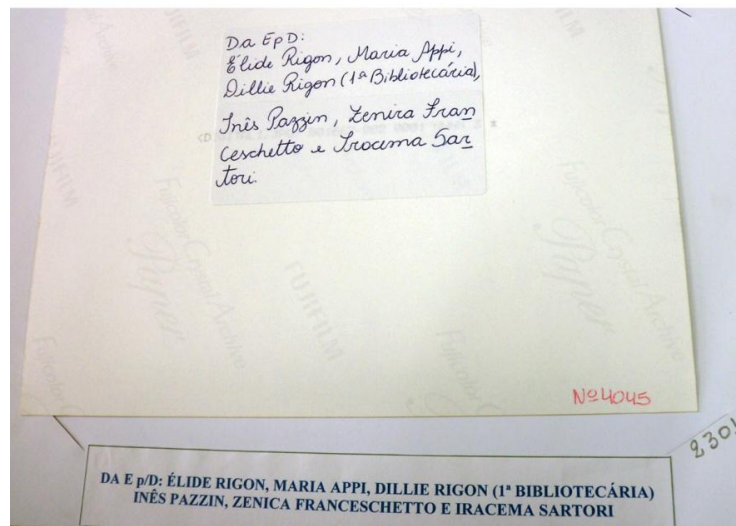 Da EpD:
Élide Rigon, Maria Appi,
Dillie Rigon (1ª Bibliotecária),
Inês Pazzin, Zenira Fran
ceschetto e Iracema Sar
tori.
FUJIFILM
Fujicolor Crystal Archive
Paper
FUJIFILM
Fujicolor Crystal Archive
Paper
Nº 4045
2301
DA E p/D: ÉLIDE RIGON, MARIA APPI, DILLIE RIGON (1ª BIBLIOTECÁRIA)
INÊS PAZZIN, ZENICA FRANCESCHETTO E IRACEMA SARTORI